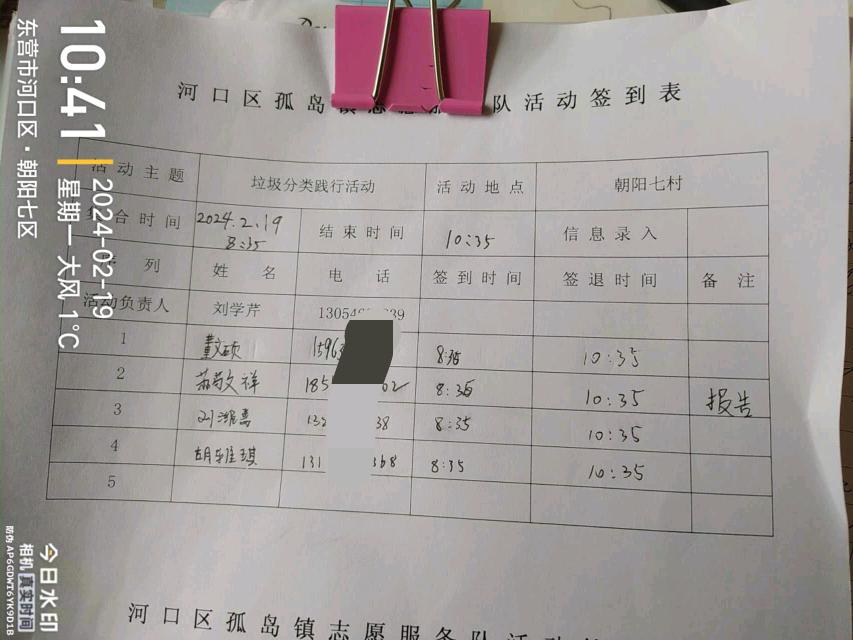 河口区孤岛镇志愿服务队活动签到表
活动主题 垃圾分类践行活动 活动地点 朝阳七村
集合时间 2024.2.19 8:35 结束时间 10:35 信息录入
序列 姓名 电话 签到时间 签退时间 备注
活动负责人 刘学芹 13054 39
1 董文硕 1596 8:35 10:35
2 苏敬祥 185 62 8:36 10:35 报告
3 刘 132 38 8:35 10:35
4 胡雅琪 131 368 8:35 10:35
5
河口区孤岛镇志愿服务队活动
10:41
2024-02-19
星期一 大风 1°C
东营市河口区·朝阳七区
今日水印
相机 真实时间
防伪 AP6GDWT6YK9D1B